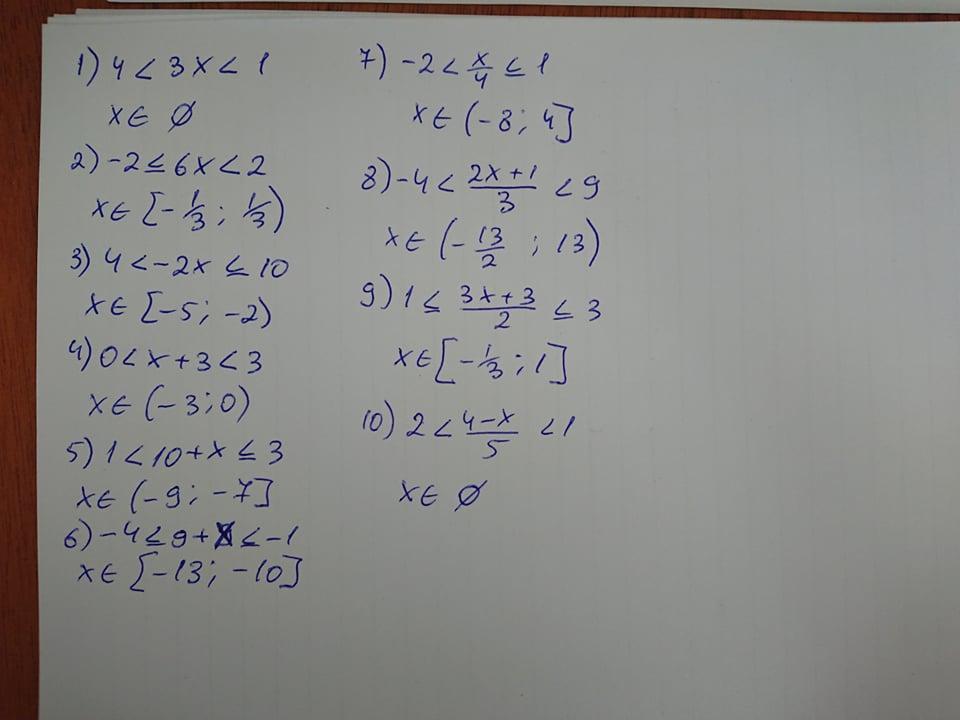 1) 4 < 3x < 1
x ∈ ∅
2) -2 ≤ 6x < 2
x ∈ [-1/3; 1/3)
3) 4 < -2x ≤ 10
x ∈ [-5; -2)
4) 0 < x + 3 < 3
x ∈ (-3; 0)
5) 1 < 10 + x ≤ 3
x ∈ (-9; -7]
6) -4 ≤ 9 + x ≤ -1
x ∈ [-13; -10]
7) -2 < x/4 ≤ 1
x ∈ (-8; 4]
8) -4 < (2x+1)/3 < 9
x ∈ (-13/2; 13)
9) 1 ≤ (3x+3)/2 ≤ 3
x ∈ [-1/3; 1]
10) 2 < (4-x)/5 < 1
x ∈ ∅